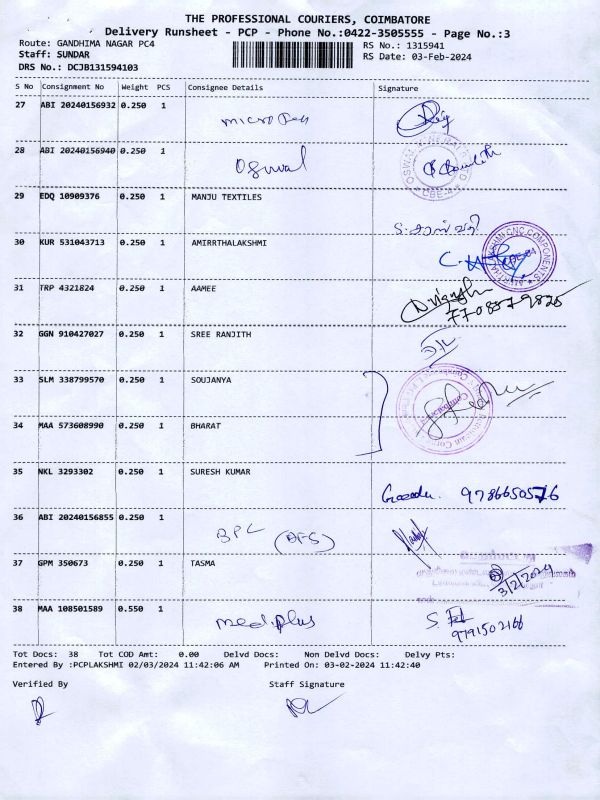 THE PROFESSIONAL COURIERS, COIMBATORE
Delivery Runsheet - PCP - Phone No.:0422-3505555 - Page No.:3
Route: GANDHIMA NAGAR PC4
RS No.: 1315941
Staff: SUNDAR
RS Date: 03-Feb-2024
DRS No.: DCJB131594103
S No Consignment No Weight PCS Consignee Details Signature
27 ABI 20240156932 0.250 1
28 ABI 20240156940 0.250 1 Oswal
29 EDQ 10909376 0.250 1 MANJU TEXTILES
30 KUR 531043713 0.250 1 AMIRRTHALAKSHMI
31 TRP 4321824 0.250 1 AAMEE
7708879826
32 GGN 910427027 0.250 1 SREE RANJITH
33 SLM 338799570 0.250 1 SOUJANYA
34 MAA 573608990 0.250 1 BHARAT
35 NKL 3293302 0.250 1 SURESH KUMAR
36 ABI 20240156855 0.250 1 BPC (AFS)
37 GPM 350673 0.250 1 TASMA 3/2/2024
38 MAA 108501589 0.550 1 medplus
9791502166
Tot Docs: 38 Tot COD Amt: 0.00 Delvd Docs: Non Delvd Docs: Delvy Pts:
Entered By :PCPLAKSHMI 02/03/2024 11:42:06 AM Printed On: 03-02-2024 11:42:40
Verified By Staff Signature